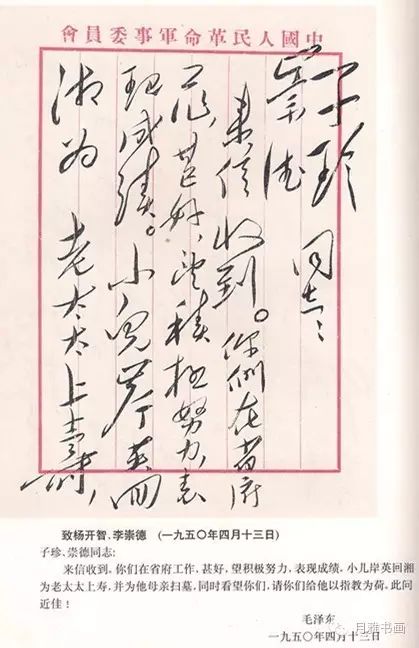 中國人民革命軍事委員會
子珍
崇德 同志：
来信收到。你们在省府
工作，甚好，望積極努力，表
現成績。小兒岸英回
湘为老太太上壽，
致杨开智、李崇德 (一九五〇年四月十三日)
子珍、崇德同志:
来信收到，你们在省府工作，甚好，望积极努力，表现成绩，小儿岸英回湘
为老太太上寿，并为他母亲扫墓，同时看望你们，请你们给他以指教为荷。此问
近佳！
毛泽东
一九五〇年四月十三日
月雅书画